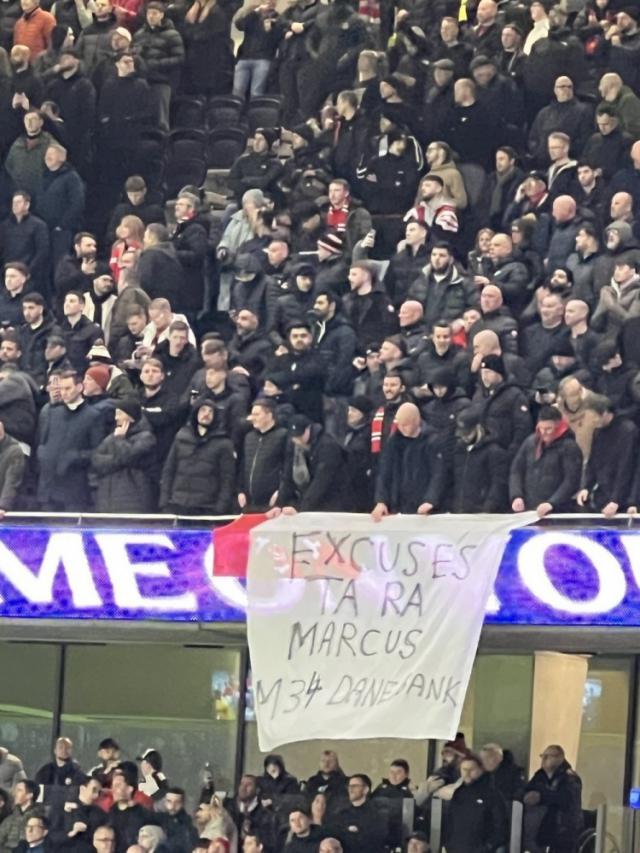 EXCUSES
TA RA
MARCUS
M34 DANEBANK